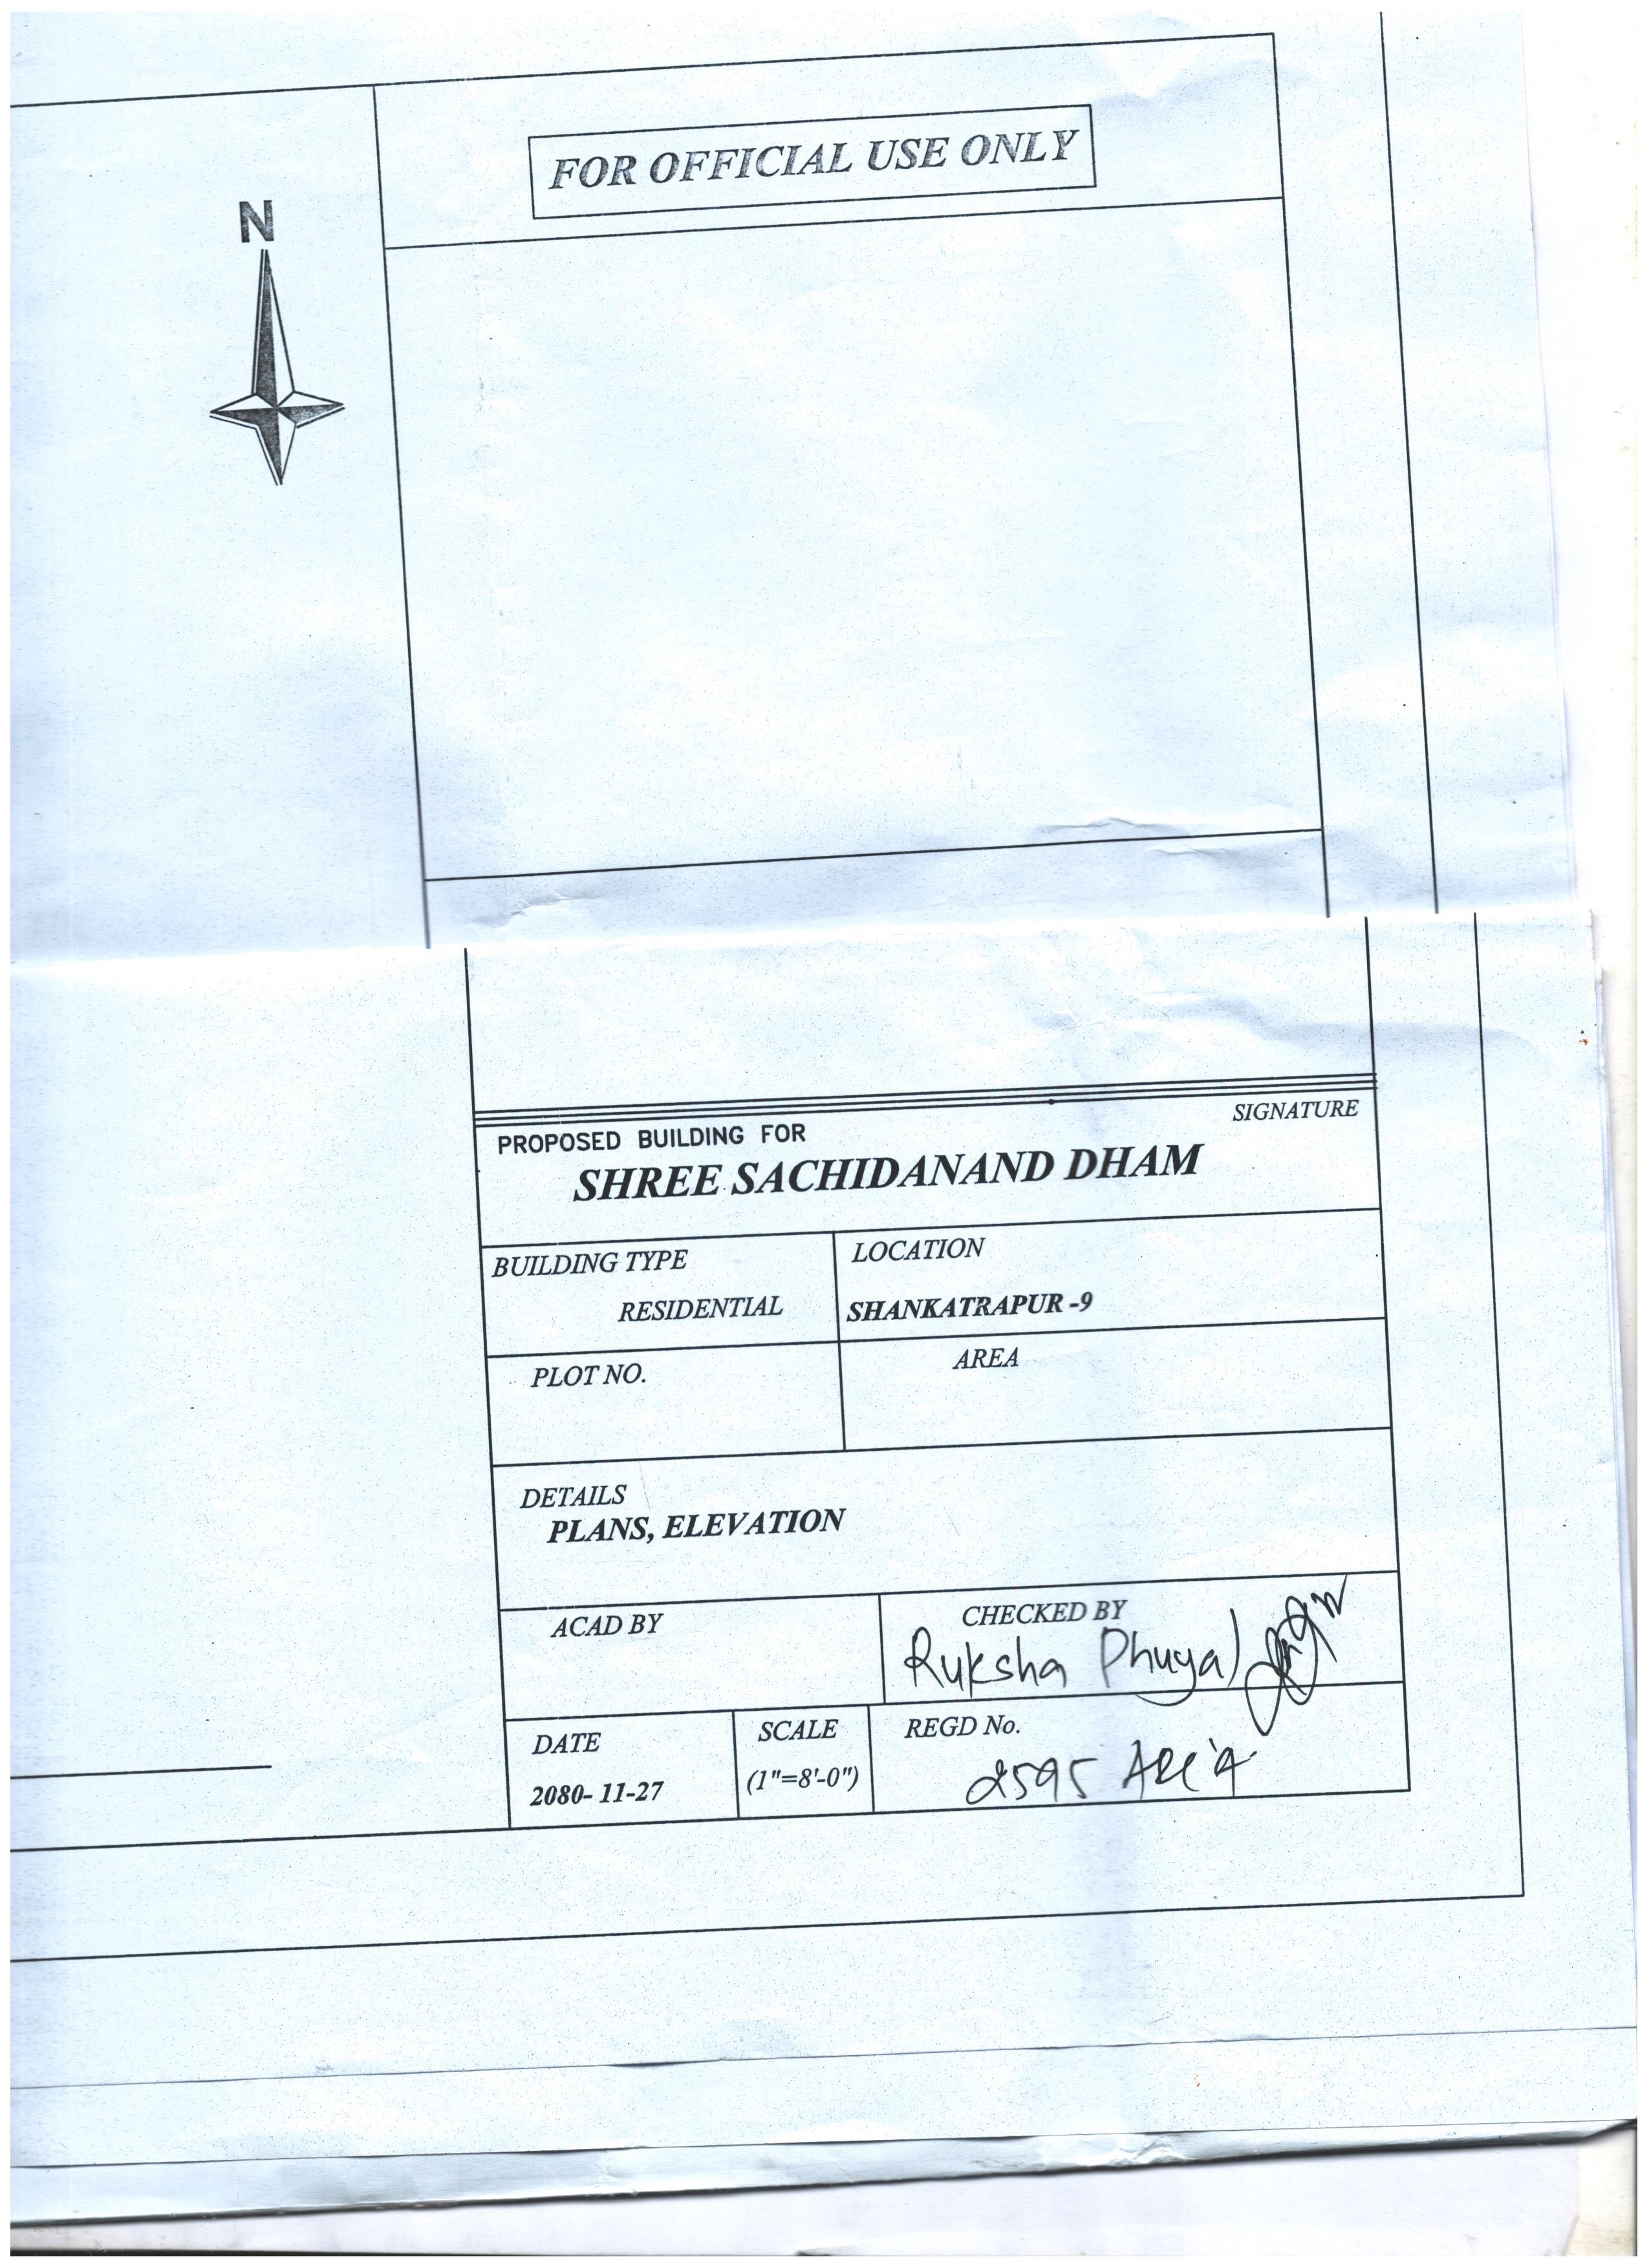 FOR OFFICIAL USE ONLY
N
SIGNATURE
PROPOSED BUILDING FOR
SHREE SACHIDANAND DHAM
BUILDING TYPE
RESIDENTIAL
LOCATION
SHANKATRAPUR -9
PLOT NO.
AREA
DETAILS
PLANS, ELEVATION
ACAD BY
CHECKED BY
Ruksha Phuyal
DATE
2080- 11-27
SCALE
(1"=8'-0")
REGD No.
2595